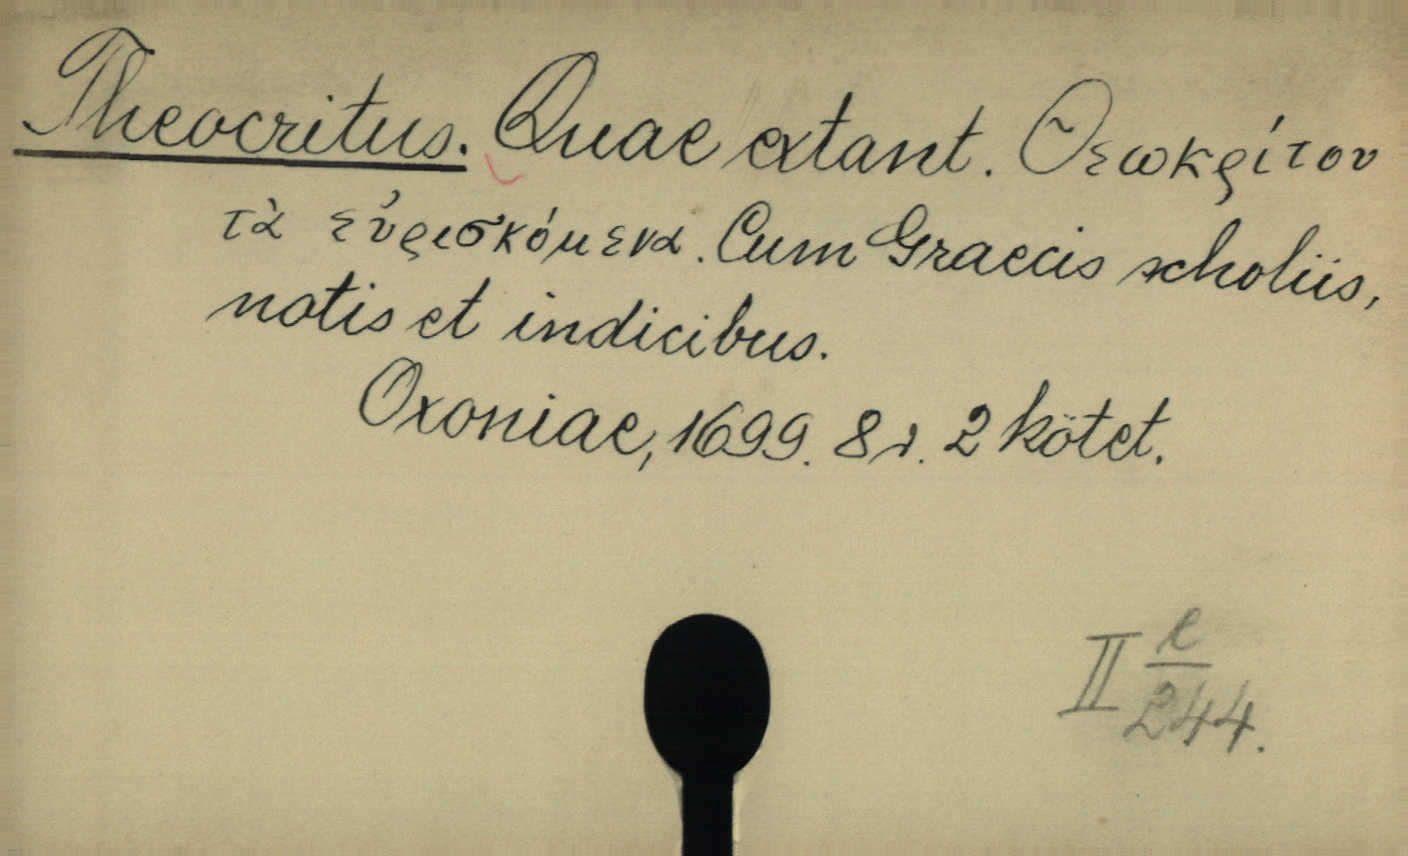 Theocritus. Quae extant. Θεωκρίτου
τὰ εὑρισκόμενα. Cum Graecis scholiis,
notis et indicibus.
Oxoniae, 1699. 8r. 2 kötet.
II e/244.